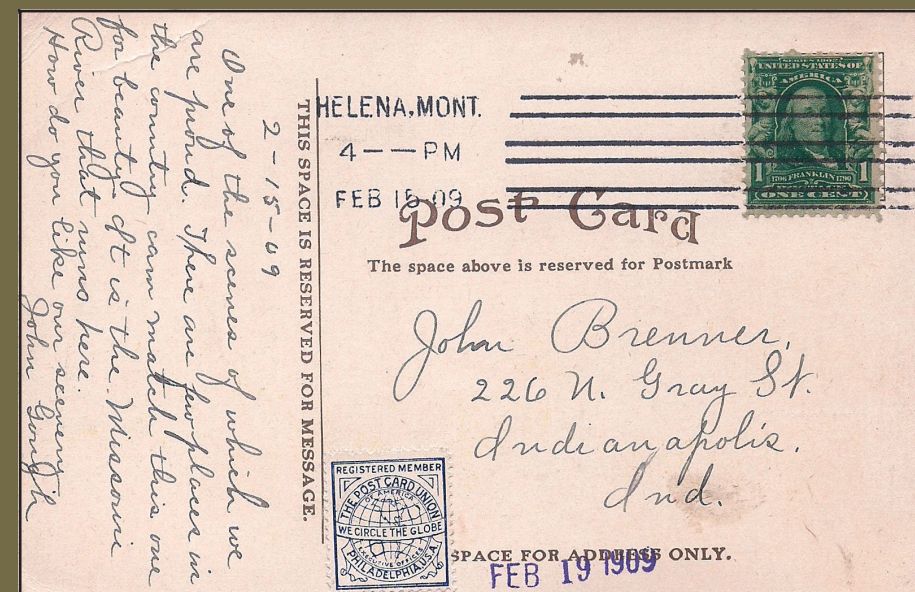 2-15-09
One of the scenes of which we
are proud. There are few places in
the country can match this one
for beauty. It is the Missouri
River that runs here.
How do you like our scenery
John Gough
THIS SPACE IS RESERVED FOR MESSAGE.
HELENA, MONT.
4 -- PM
FEB 15 09
SERIES 1902
UNITED STATES OF
AMERICA
1706 FRANKLIN 1790
1 1
ONE CENT
Post Card
The space above is reserved for Postmark
John Brenner,
226 N. Gray St.
Indianapolis.
Ind.
REGISTERED MEMBER
THE POST CARD UNION
OF AMERICA
WE CIRCLE THE GLOBE
EXECUTIVE OFFICES
PHILADELPHIA U.S.A.
SPACE FOR ADDRESS ONLY.
FEB 19 1909